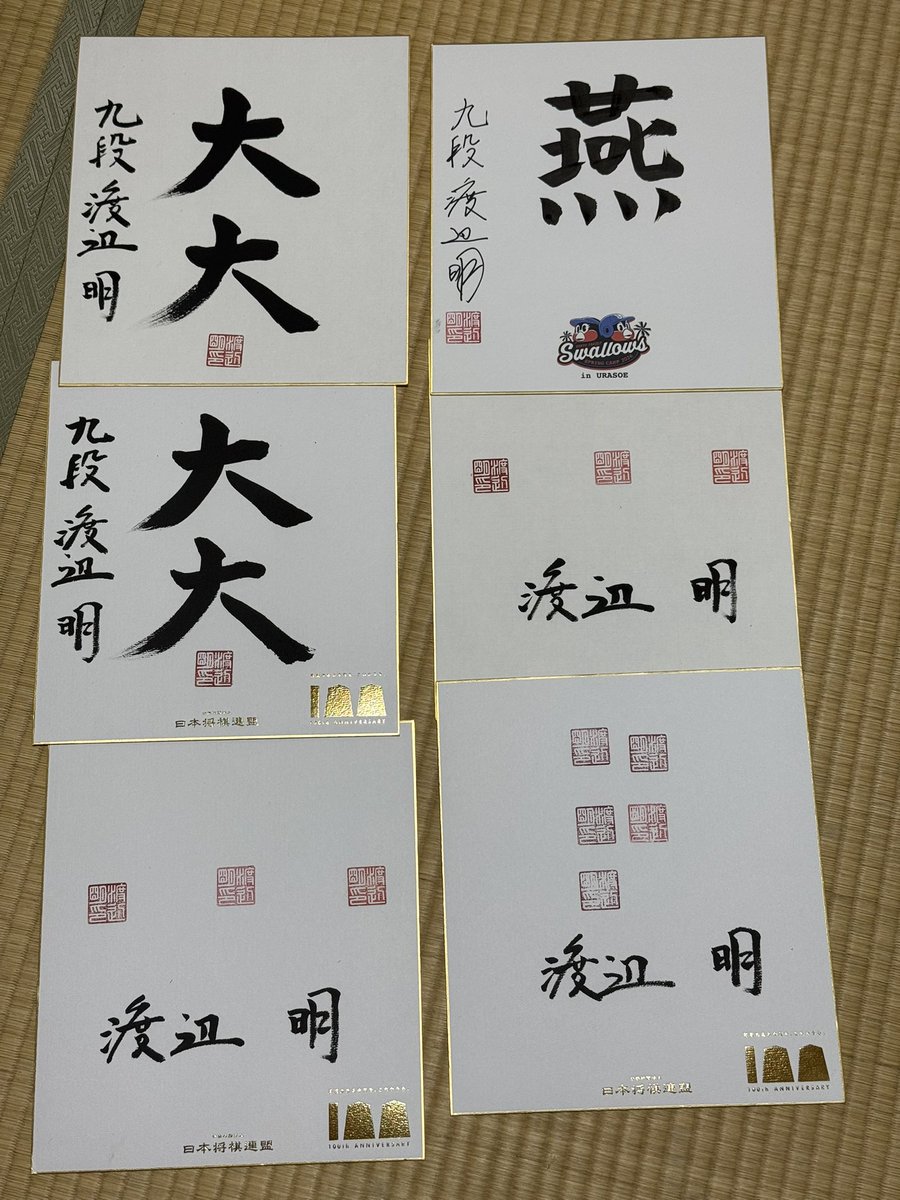 大
大
九段 渡辺 明
燕
九段 渡辺 明
Swallows
in URASOE
大
大
九段 渡辺 明
日本将棋連盟
100th ANNIVERSARY
渡辺 明
渡辺 明
日本将棋連盟
100th ANNIVERSARY
渡辺 明
日本将棋連盟
100th ANNIVERSARY